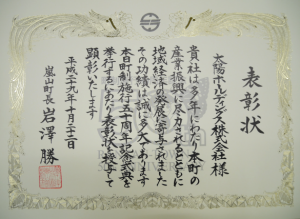 表彰状
太陽ホールディングス株式会社様
貴社は多年にわたり本町の
産業振興に尽力されるとともに
地域経済の発展に寄与されました
その功績は誠に多大であります
本日町制施行五十周年記念式典を
挙行するにあたり表彰状を授与して
顕彰いたします
平成二十九年十月二十二日
嵐山町長 岩澤 勝